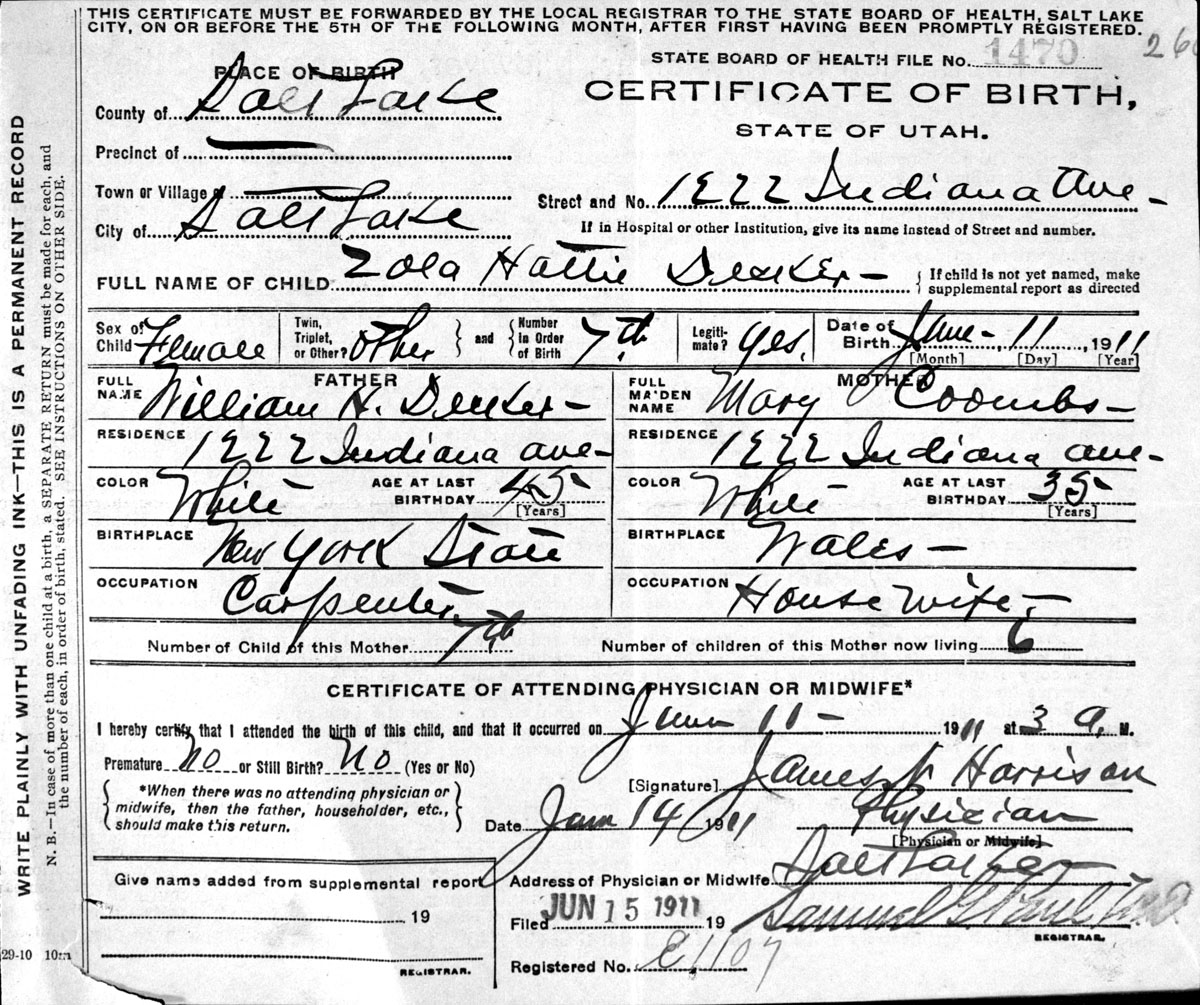 THIS CERTIFICATE MUST BE FORWARDED BY THE LOCAL REGISTRAR TO THE STATE BOARD OF HEALTH, SALT LAKE
CITY, ON OR BEFORE THE 5TH OF THE FOLLOWING MONTH, AFTER FIRST HAVING BEEN PROMPTLY REGISTERED.
STATE BOARD OF HEALTH FILE No. 1470
PLACE OF BIRTH
CERTIFICATE OF BIRTH,
STATE OF UTAH.
County of Salt Lake
Precinct of
Town or Village of
City of Salt Lake
Street and No. 1222 Indiana Ave
If in Hospital or other Institution, give its name instead of Street and number.
FULL NAME OF CHILD Zola Hattie Decker
If child is not yet named, make
supplemental report as directed
Sex of Child Female
Twin, Triplet, or Other? Other and Number in Order of Birth 7th
Legitimate? Yes.
Date of Birth June 11, 1911
[Month] [Day] [Year]
FATHER
FULL NAME William H. Decker
RESIDENCE 1222 Indiana ave
COLOR White AGE AT LAST BIRTHDAY 45 [Years]
BIRTHPLACE New York State
OCCUPATION Carpenter
MOTHER
FULL MAIDEN NAME Mary Coombs
RESIDENCE 1222 Indiana ave
COLOR White AGE AT LAST BIRTHDAY 35 [Years]
BIRTHPLACE Wales
OCCUPATION House wife
Number of Child of this Mother 7th Number of children of this Mother now living 6
CERTIFICATE OF ATTENDING PHYSICIAN OR MIDWIFE*
I hereby certify that I attended the birth of this child, and that it occurred on June 11 1911 at 3 a. M.
Premature No or Still Birth? No (Yes or No)
[Signature] James Harrison
*When there was no attending physician or
midwife, then the father, householder, etc.,
should make this return.
Date June 14 1911 Physician
[Physician or Midwife]
Give name added from supplemental report
19
REGISTRAR.
Address of Physician or Midwife Salt Lake
Filed JUN 15 1911 19 Samuel G. Paul
REGISTRAR.
Registered No. E1107
29-10 10m
WRITE PLAINLY WITH UNFADING INK—THIS IS A PERMANENT RECORD
N. B.—In case of more than one child at a birth, a SEPARATE RETURN must be made for each, and
the number of each, in order of birth, stated. SEE INSTRUCTIONS ON OTHER SIDE.